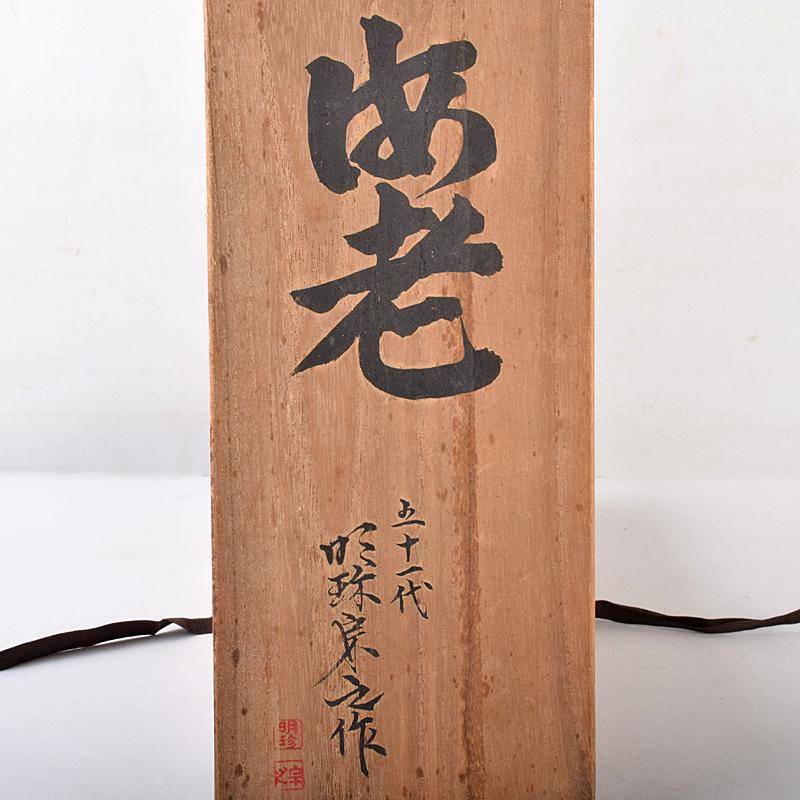 海老
五十一代
明珍宗之作
明珍
宗之